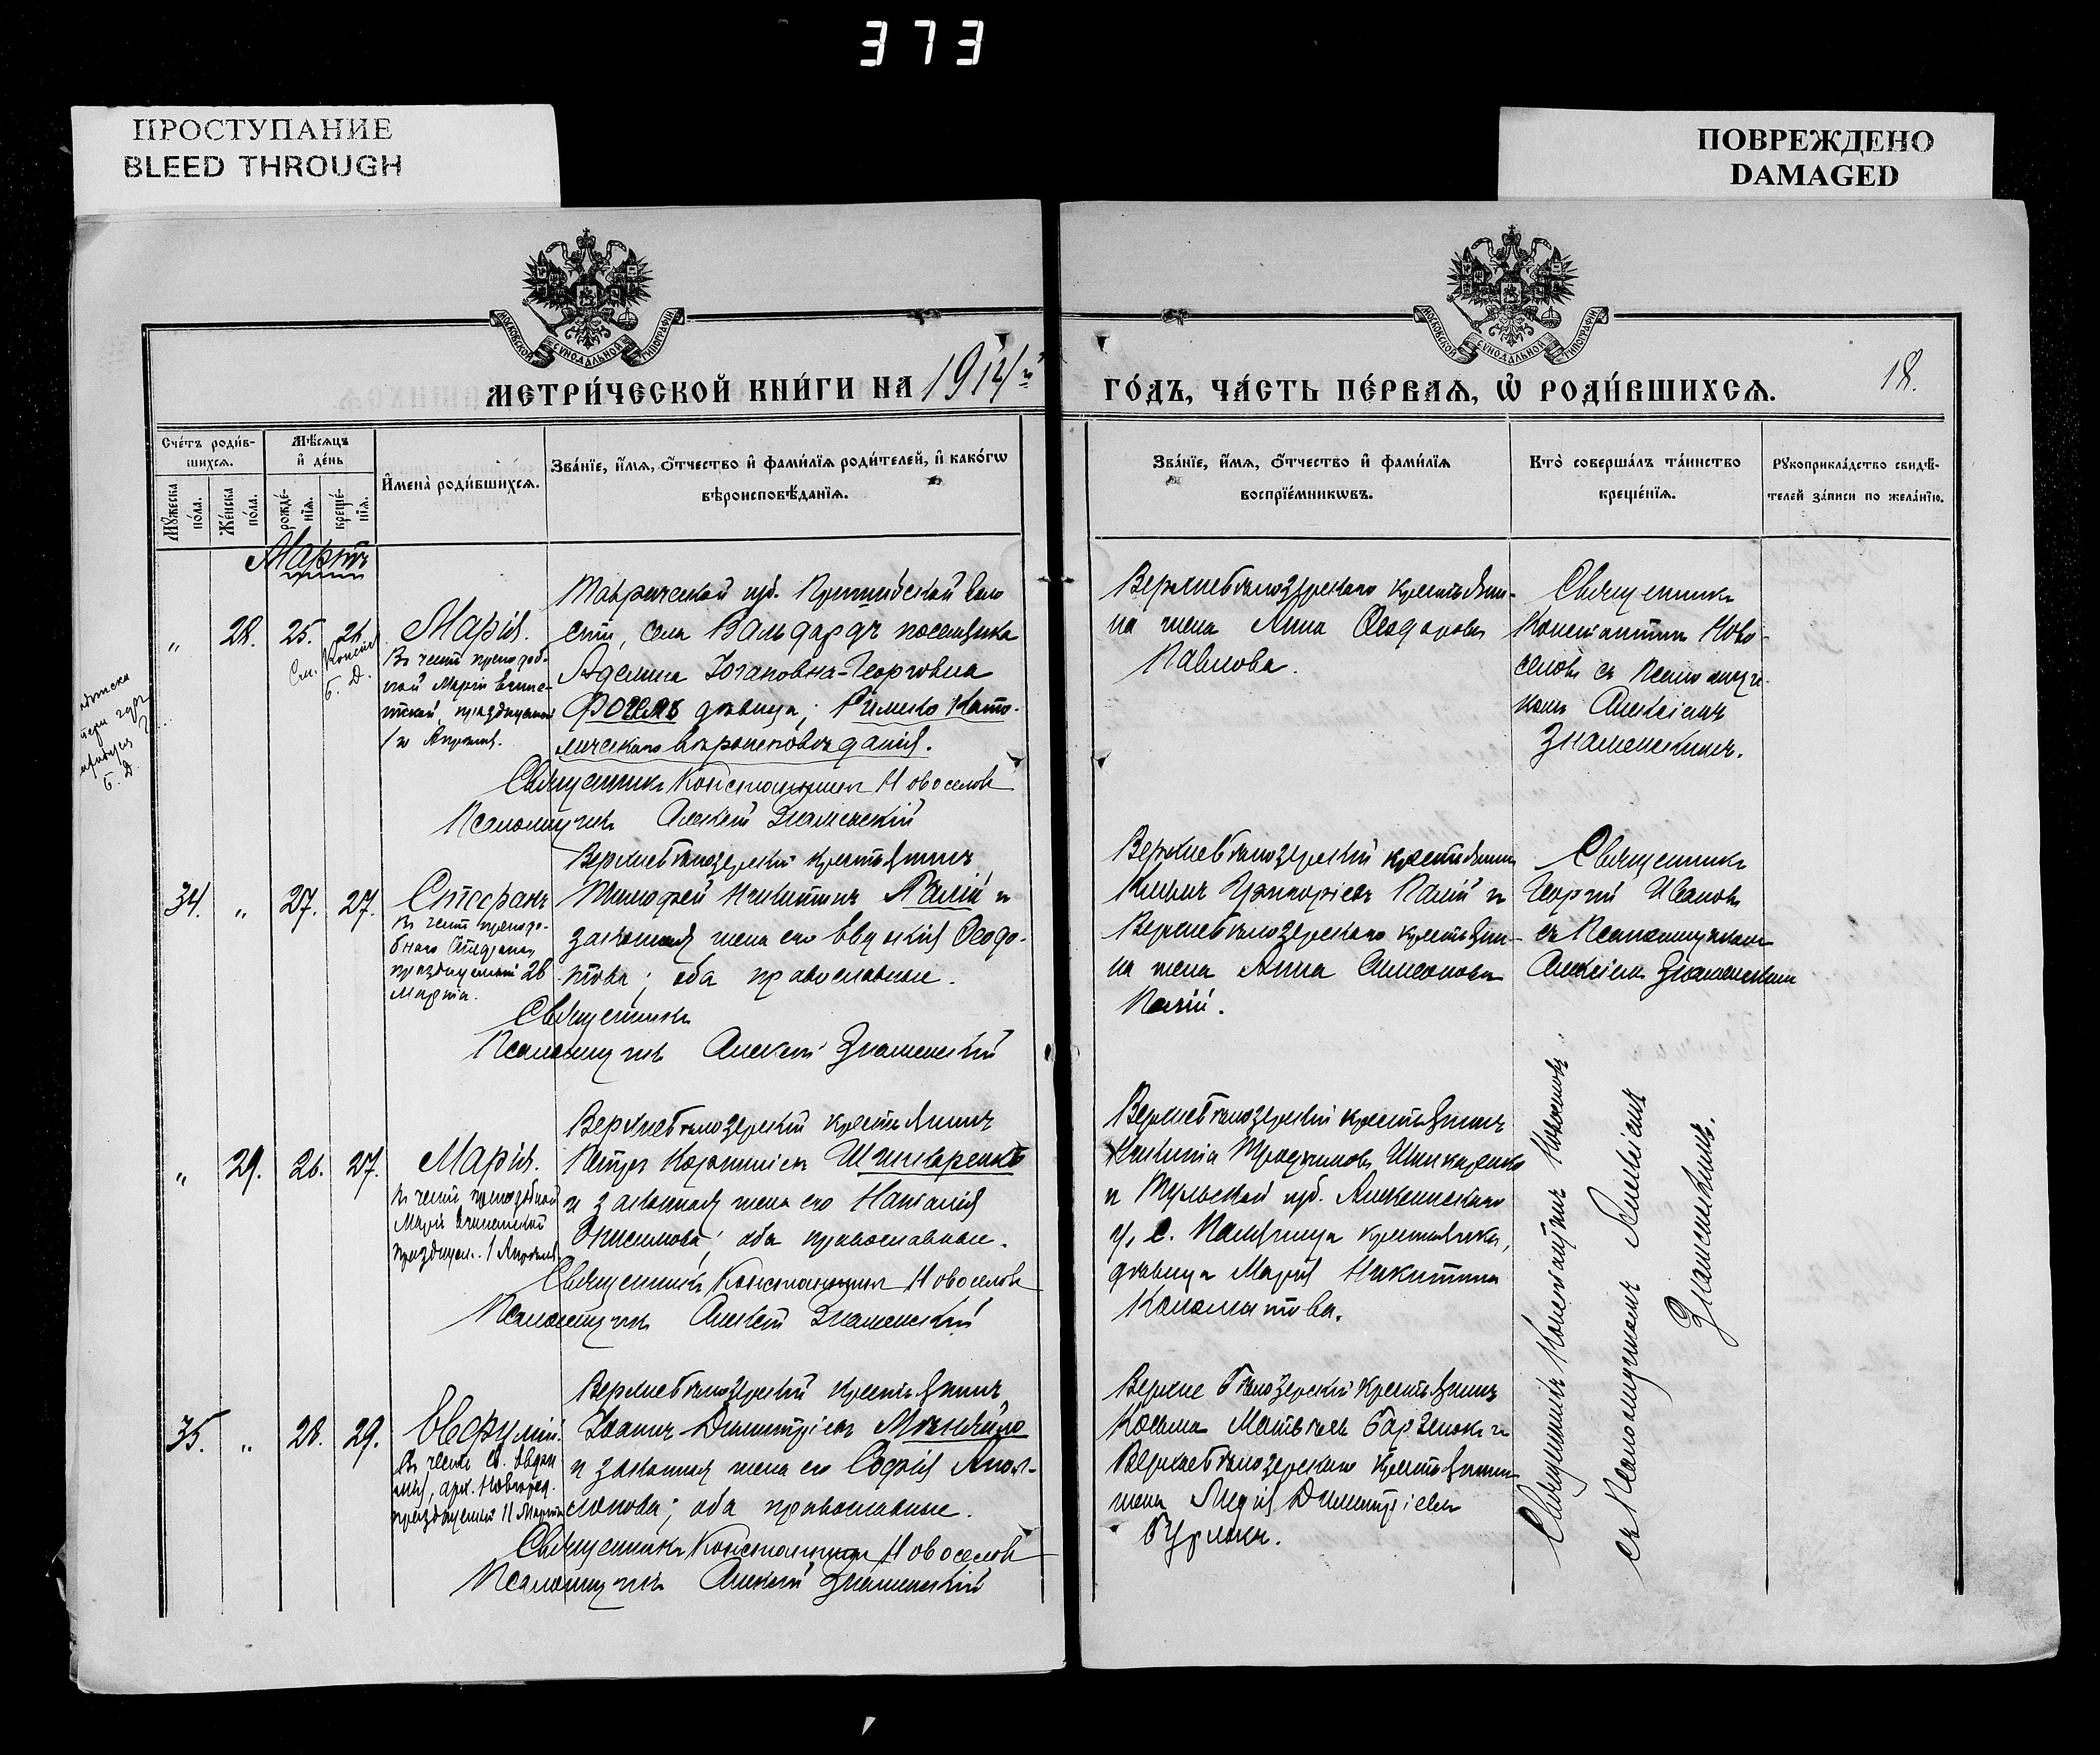 373
ПРОСТУПАНИЕ
BLEED THROUGH
ПОВРЕЖДЕНО
DAMAGED
МОСКОВСКОЙ СѴНОДАЛЬНОЙ ТИПОГРАФІИ
МОСКОВСКОЙ СѴНОДАЛЬНОЙ ТИПОГРАФІИ
МЕТРИ́ЧЕСКОЙ КНИ́ГИ НА 1914й
ГО́ДЪ, ЧА́СТЬ ПЕ́РВАѦ, Ѡ҆ РОДИ́ВШИХСѦ.
18.
Сче́тъ роди́в-
шихсѧ.
Мꙋ́жеска по́ла.
Же́нска по́ла.
Мѣ́сѧцъ
и҆ де́нь
рожде́-
нїѧ.
креще́-
нїѧ.
И҆мена̀ роди́вшихсѧ.
Зва́нїе, и҆́мѧ, ѻ҆́тчество и҆ фами́лїѧ роди́телей, и҆ како́гѡ
вѣроисповѣ́данїѧ.
Зва́нїе, и҆́мѧ, ѻ҆́тчество и҆ фами́лїѧ
воспрїе́мникѡвъ.
Кто̀ соверша́лъ та́инство
креще́нїѧ.
Рꙋкоприкла́дство свидѣ́-
телей за́писи по жела́нїю.
Мартъ
„ 28. 25. 26.
Марія.
Въ честь преподоб-
ной Маріи Египе-
тской, празднуемой
1го Апрѣля.
Таврической губ. воло
сти, села Вальдардъ поселянка
Аделина Іогановна-Георговна
дѣвица; Римско Като-
лическаго вѣроисповѣданія.
Священникъ Константинъ Новоселовъ
Псаломщикъ Алексѣй Знаменскій
Верхнебѣлозерскаго крестьяни-
на жена Анна Ѳеодорова
Павлова.
Священникъ
Константинъ Ново-
селовъ съ Псаломщи-
комъ Алексіемъ
Знаменскимъ.
34. „ 27. 27.
Стефанъ
Въ честь преподо-
бнаго Стефана,
празднуемый 28
Марта.
Верхнебѣлозерскій крестьянинъ
Тимофей Никитинъ Палій и
законная жена его Евдокія Ѳеодо-
това; оба православные.
Священникъ
Псаломщикъ Алексѣй Знаменскій
Верхнебѣлозерскій крестьянинъ
Григоріевъ Палій и
Верхнебѣлозерскаго крестьяни-
на жена Анна Симеонова
Палій.
Священникъ
Георгій Ивановъ
съ Псаломщикомъ
Алексіемъ Знаменскимъ
„ 29. 26. 27.
Марія.
Въ честь преподобной
Маріи Египетской
празднуем. 1 Апрѣля.
Верхнебѣлозерскій крестьянинъ
Петръ Корниліевъ Шинкаренко
и законная жена его Наталія
Онисимова; оба православные.
Священникъ Константинъ Новоселовъ
Псаломщикъ Алексѣй Знаменскій
Верхнебѣлозерскій крестьянинъ
Трофимовъ Шинкаренко
и Тульской губ. Алексинскаго
у. с. крестьянка,
дѣвица Марія Никитина
35. „ 28. 29.
Евфимій.
Въ честь св. Евфи-
мія, арх. Новгород.
празднуемый 11 Марта
Верхнебѣлозерскій крестьянинъ
Іоаннъ Димитріевъ
и законная жена его Софія Апол-
лонова; оба православные.
Священникъ Константинъ Новоселовъ
Псаломщикъ Алексѣй Знаменскій
Верхне бѣлозерскій крестьянинъ
Косьма Матвѣевъ и
Верхнебѣлозерскаго крестьянин-
жена Лидія Димитріева
Бурлака.
Священникъ Константинъ Новоселовъ
съ Псаломщикомъ Алексіемъ
Знаменскимъ.